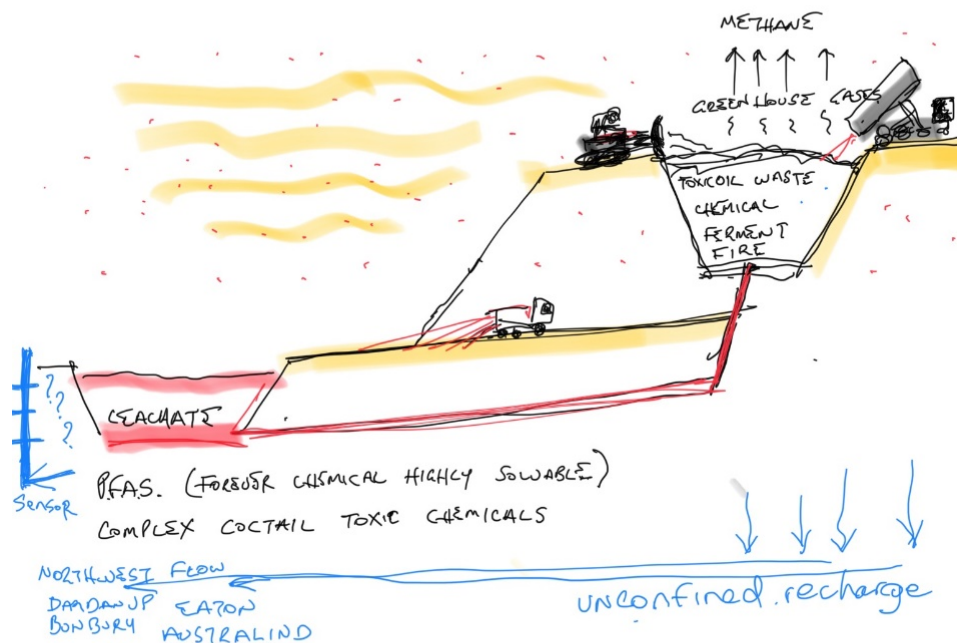 METHANE
GREENHOUSE GASES
TOXICOIL WASTE
CHEMICAL
FERMENT
FIRE
?
?
?
LEACHATE
Sensor
P.F.A.S. (FOREVER CHEMICAL HIGHLY SOLUABLE)
COMPLEX COCTAIL TOXIC CHEMICALS
NORTHWEST FLOW
DARDANUP EATON
BONBURY AUSTRALIND
unconfined.recharge